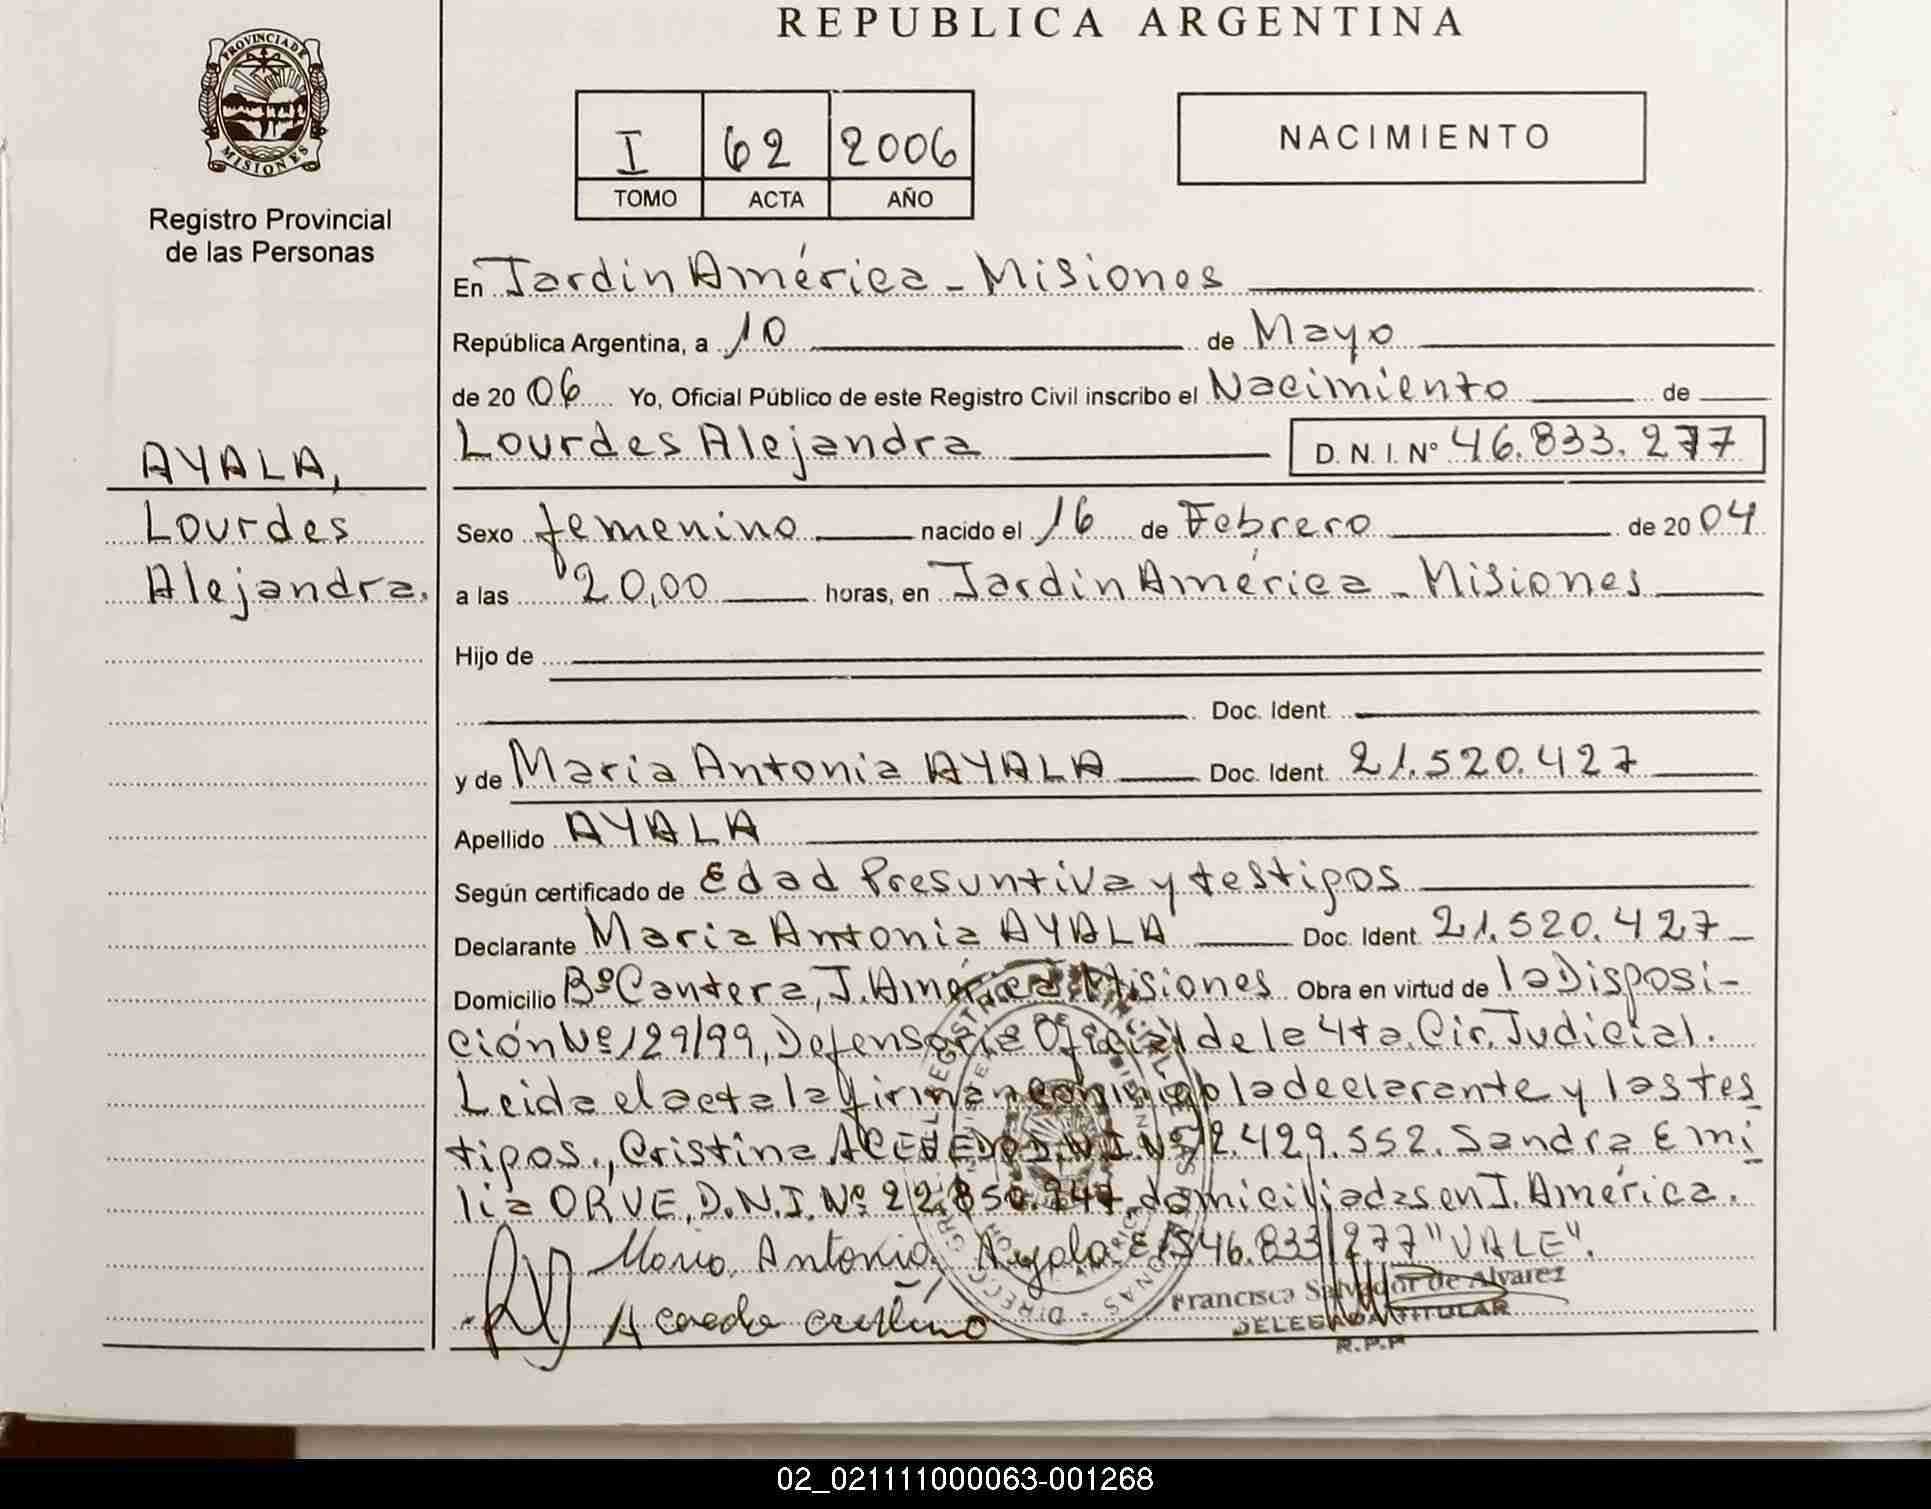 REPUBLICA ARGENTINA
PROVINCIA DE
MISIONES
Registro Provincial
de las Personas
I 62 2006
TOMO ACTA AÑO
NACIMIENTO
En Jardin América - Misiones
República Argentina, a 10 de Mayo
de 20 06 Yo, Oficial Público de este Registro Civil inscribo el Nacimiento de
Lourdes Alejandra D. N. I. Nº 46.833.277
AYALA,
Lourdes
Alejandra.
Sexo femenino nacido el 16 de Febrero de 20 04
a las 20,00 horas, en Jardin América - Misiones
Hijo de
Doc. Ident.
y de Maria Antonia AYALA Doc. Ident. 21.520.427
Apellido AYALA
Según certificado de Edad Presuntiva y testigos
Declarante Maria Antonia AYALA Doc. Ident. 21.520.427
Domicilio Bº Cantera, J. América Misiones Obra en virtud de la Disposi-
ción Nº 129/99, Defensoria Oficial de la 4ta. Cir. Judicial.
Leida el acta la firman conmigo la declarante y las tes
tigos, Cristina ACEVEDO D.N.I. Nº 2.429.552. Sandra Emi
lia ORUE, D.N.I. Nº 22.850. domiciliadas en J. América.
Maria Antonia Ayala E/S 46.833.277 "VALE".
Francisca Salvador de Alvarez
DELEGADA TITULAR
R.P.P
02_021111000063-001268